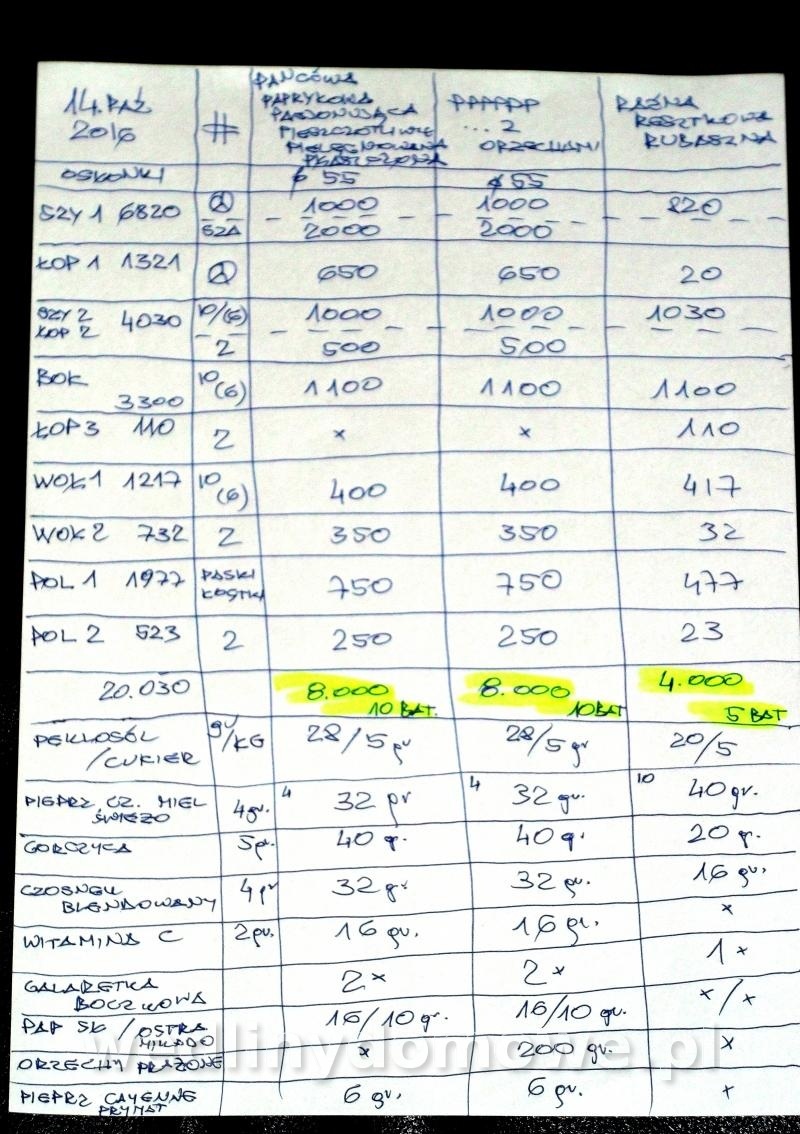 14.PAŹ 2016 # PANCÓWA PAPRYKOWA PPPPPP RAŹNA
... 2 RESZTKOWA
PIESZCZOTLIWIE ORZECHAMI RUBASZNA
OSŁONKI ¢ 55 ¢ 55
SZY 1 6820 1000 1000 820
SZA 2000 2000
ŁOP 1 1321 650 650 20
SZY 2 ŁOP 2 4030 10/(6) 1000 1000 1030
2 500 500
BOK 3300 10 (6) 1100 1100 1100
ŁOP 3 110 2 x x 110
WOŁ 1 1217 10 (6) 400 400 417
WOŁ 2 732 2 350 350 32
POL 1 1977 PASKI KOSTKI 750 750 477
POL 2 523 2 250 250 23
20.030 8.000 8.000 4.000
10 BAT. 10 BAT 5 BAT
PEKLOSÓL /CUKIER gr/KG 28/5 gr 28/5 gr 20/5
PIEPRZ CZ. MIEL ŚWIEŻO 4 gr. 4 32 gr 4 32 gr. 10 40 gr.
GORCZYCA 5 gr. 40 gr. 40 gr. 20 gr.
CZOSNEK BLENDOWANY 4 gr 32 gr 32 gr. 16 gr.
WITAMINA C 2 gr. 16 gr. 16 gr. x
GALARETKA BOCZKOWA 2 x 2 x 1 x
PAP SŁ / OSTRA MIKADO 16/10 gr. 16/10 gr. x/x
ORZECHY PRAŻONE x 200 gr. x
PIEPRZ CAYENNE PRYMAT 6 gr. 6 gr. x
wedlinydomowe.pl